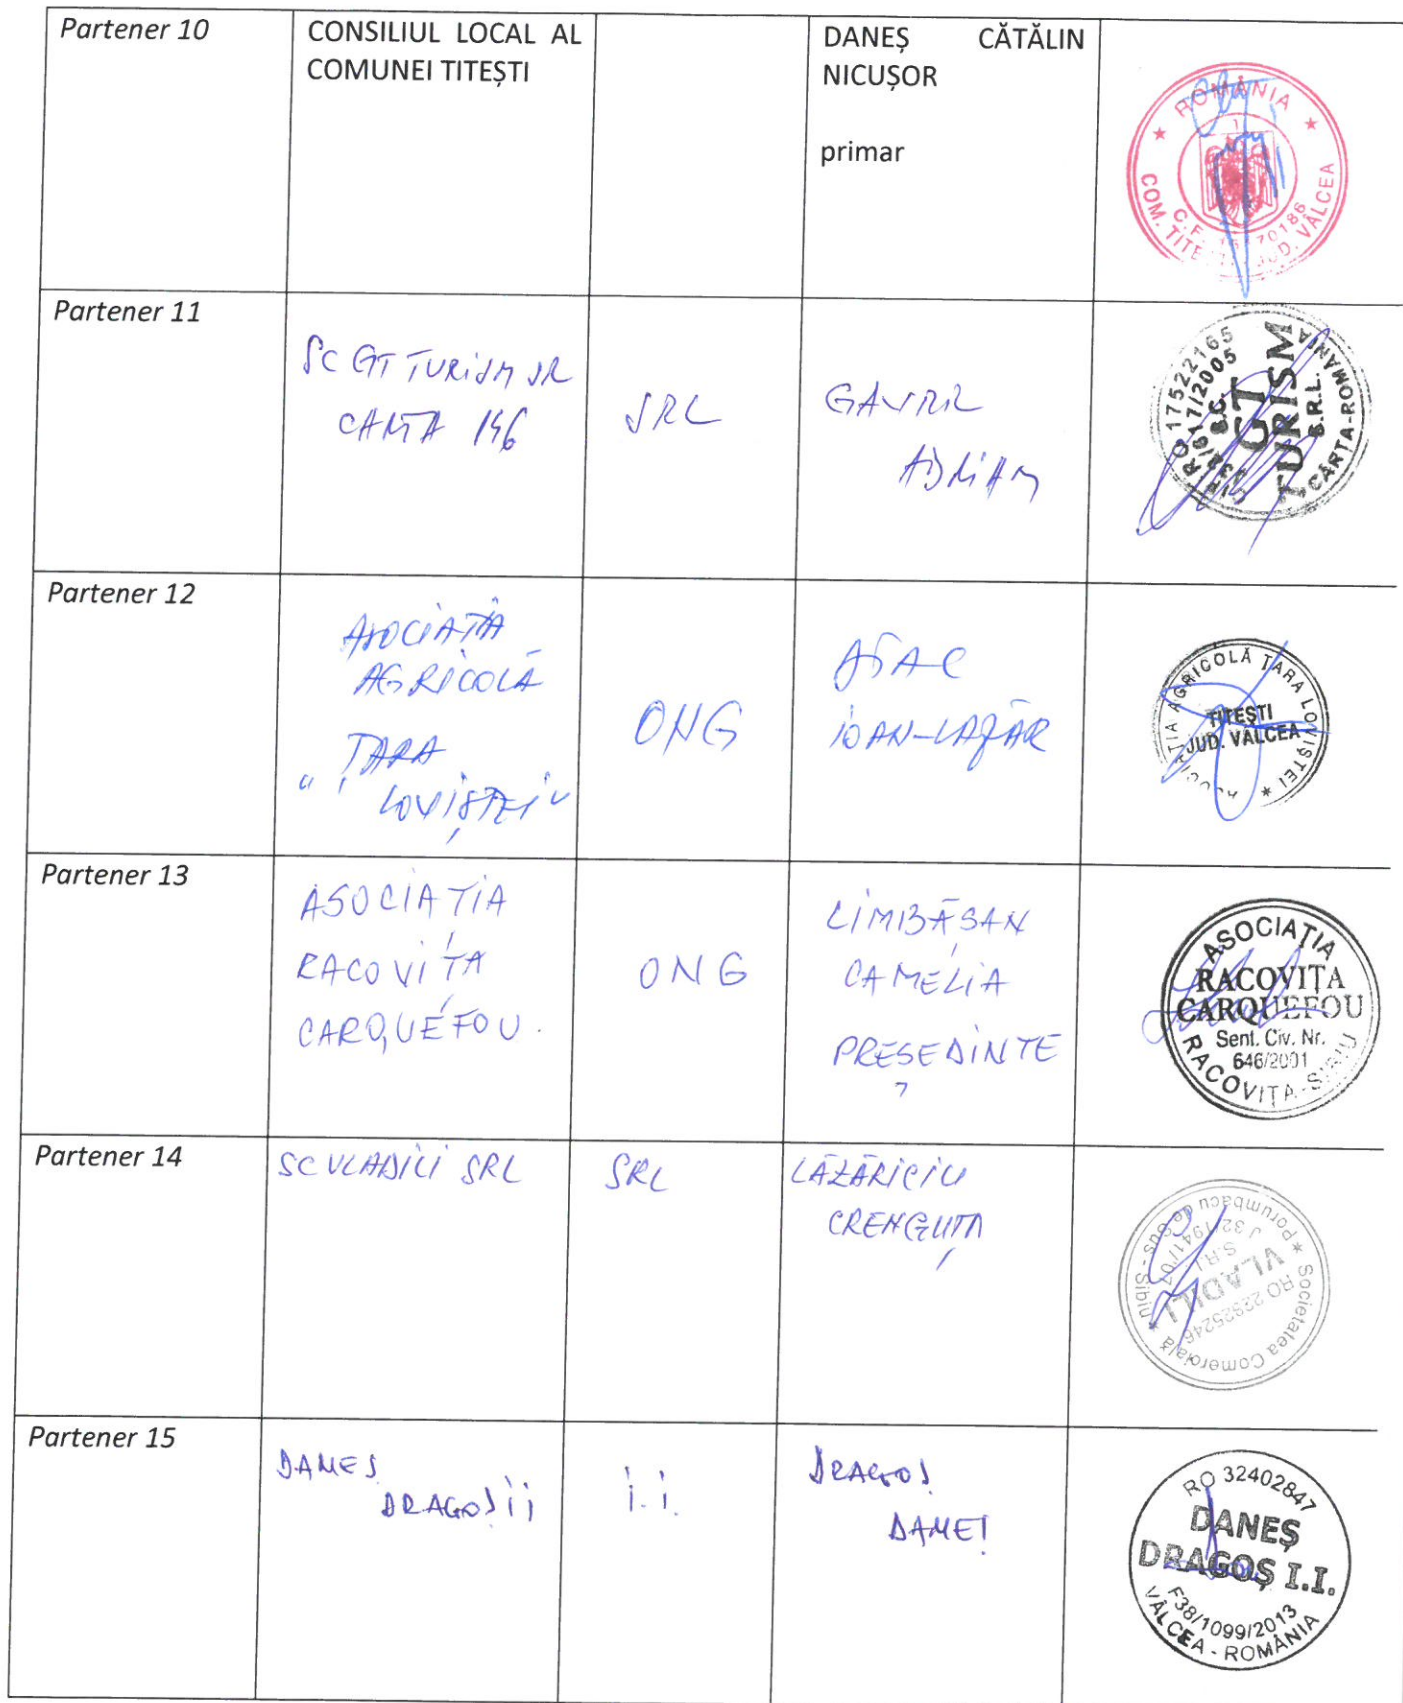 Partener 10
CONSILIUL LOCAL AL
COMUNEI TITEȘTI
DANEȘ CĂTĂLIN
NICUȘOR
primar
ROMÂNIA
COM. TITEȘTI JUD. VÂLCEA
Partener 11
SC GT TURISM SRL
CARTA 146
SRL
GAVRIL
ADRIAN
RO 17522165
S.C.
GT
TURISM
S.R.L.
CÂRTA-ROMÂNIA
Partener 12
ASOCIAȚIA
AGRICOLĂ
"ȚARA
LOVIȘTEI"
ONG
ISAC
IOAN-LAZĂR
ASOCIAȚIA AGRICOLĂ ȚARA LOVIȘTEI *
TITEȘTI
JUD. VÂLCEA
Partener 13
ASOCIAȚIA
RACOVIȚA
CARQUEFOU.
ONG
LIMBĂȘAN
CAMELIA
PREȘEDINTE
ASOCIAȚIA
RACOVIȚA
CARQUEFOU
Sent. Civ. Nr.
646/2001
RACOVIȚA-SIBIU
Partener 14
SC VLADILI SRL
SRL
LĂZĂRICIU
CRENGUȚA
* Societatea Comercială *
Porumbacu de Sus - Sibiu
S.R.L.
VLADILI
RO 22925246
Partener 15
DANEȘ
DRAGOȘ ii
i.i.
DRAGOȘ
DANEȘ
RO 32402847
DANEȘ
DRAGOȘ I.I.
F38/1099/2013
VÂLCEA - ROMÂNIA